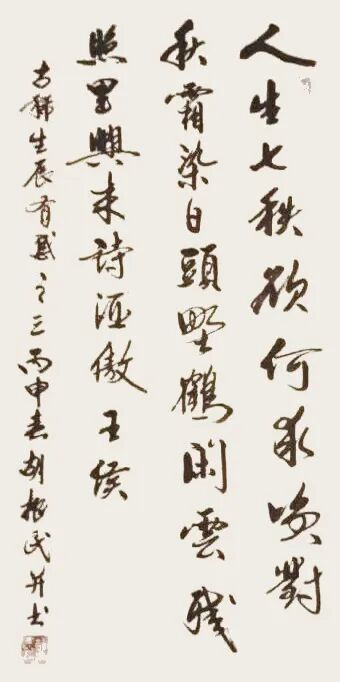 人生七秩欲何求咲對
秋霜染白頭野鶴閑雲残
照里興来詩酒傲王侯
古稀生辰有感之三丙申春胡振民并书